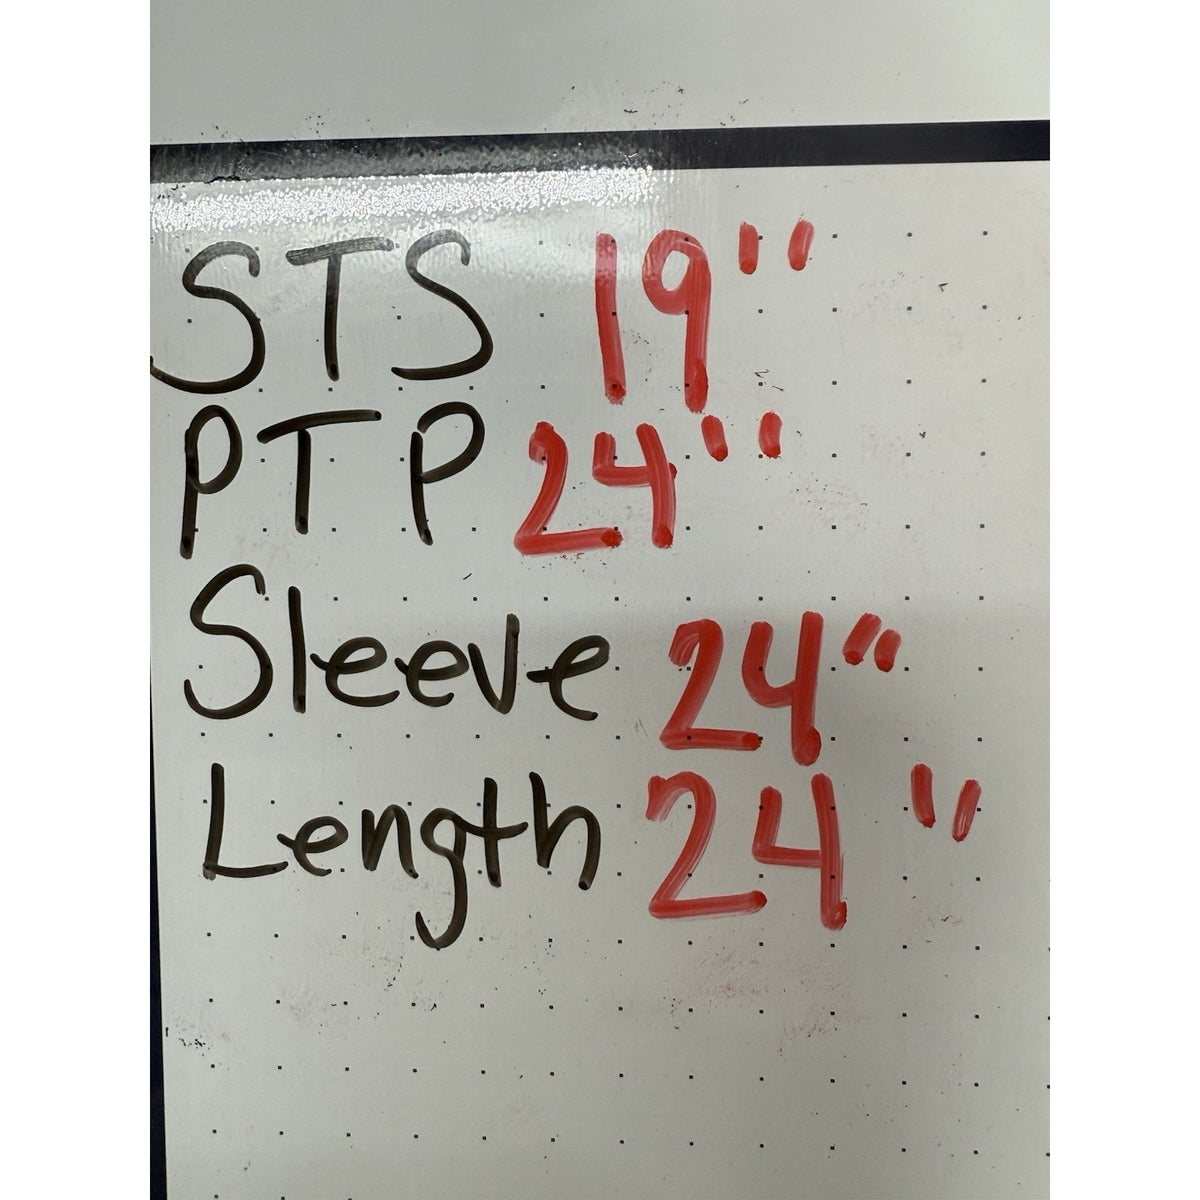 STS 19"
PTP 24"
Sleeve 24"
Length 24"